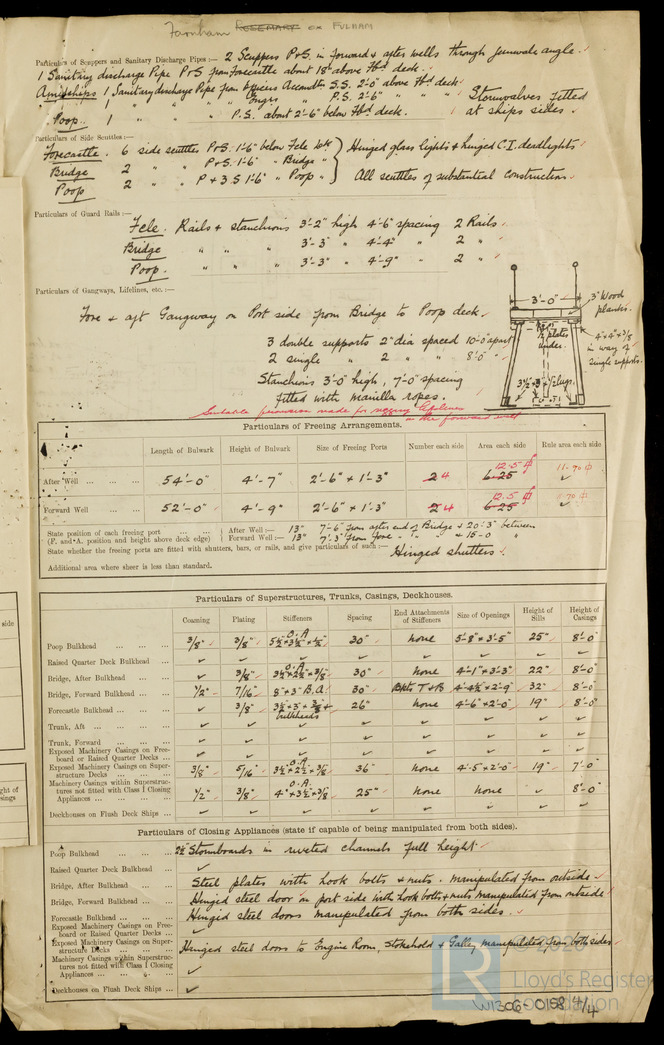 Farnham ROSEMARY ex FULHAM
Particulars of Scuppers and Sanitary Discharge Pipes :— 2 Scuppers P & S. in forward & after wells through gunwale angle.
1 Sanitary discharge Pipe P & S from Forecastle about 18" above Fbd. deck.
Amidships 1 Sanitary discharge Pipe from Officers Accomdtn S.S. 2'-0" above Fbd. deck
" 1 " " " " Engrs " P.S. 2'-6" " " "
Poop. 1 " " " P.S. about 2'-6" below Fbd. deck.
Stormvalves fitted
at ships sides.
Particulars of Side Scuttles :—
Forecastle. 6 side scuttles P & S. 1'-6" below Fcle dk
Bridge 2 " " P & S. 1'-6" " Bridge "
Poop 2 " " P & S 1'-6" " Poop "
Hinged glass lights & hinged C.I. deadlights
All scuttles of substantial construction.
Particulars of Guard Rails :—
Fcle. Rails & stanchions 3'-2" high 4'-6" spacing 2 Rails
Bridge " " " 3'-3" " 4'-4" " 2 "
Poop. " " " 3'-3" " 4'-9" " 2 "
Particulars of Gangways, Lifelines, etc. :—
Fore & aft Gangway on Port side from Bridge to Poop deck.
3 double supports 2" dia spaced 10'-0" apart
2 single " 2 " " 8'-0" "
Stanchions 3'-0" high, 7'-0" spacing
fitted with manilla ropes.
3'-0"
3" Wood
planks.
plates
under.
4" × 4" × 3/8
in way of
single supports.
Suitable provision made for rigging lifelines
in the forward well
Particulars of Freeing Arrangements.
Length of Bulwark Height of Bulwark Size of Freeing Ports Number each side Area each side Rule area each side
After Well ... ... ... 54'-0" 4'-7" 2'-6" × 1'-3" 2 4 6.25 12.5 11.70
Forward Well ... ... 52'-0" 4'-9" 2'-6" × 1'-3" 2 4 6.25 12.5
State position of each freeing port ... ... ... After Well :— 13" 7'-6" from after end of Bridge & 20'-3" between
(F. and A. position and height above deck edge) Forward Well :— 13" 7'-3" from fore " " " & 15'-0 "
State whether the freeing ports are fitted with shutters, bars, or rails, and give particulars of each :— Hinged shutters
Additional area where sheer is less than standard.
Particulars of Superstructures, Trunks, Casings, Deckhouses.
Coaming Plating Stiffeners Spacing End Attachments of Stiffeners Size of Openings Height of Sills Height of Casings
Poop Bulkhead ... ... ... 3/8" 3/8" O.A. 30" none 3'-8" × 3'-5" 25" 8'-0"
Raised Quarter Deck Bulkhead ...
Bridge, After Bulkhead ... ... - 3/8" O.A. 3½ × 2½ × 3/8 30" none 4'-1" × 3'-3" 22" 8'-0"
Bridge, Forward Bulkhead ... ... ½" 7/16" 8" × 3" B.A. 30" Bkts T & B 4'-4½ × 2'-9" 32" 8'-0"
Forecastle Bulkhead ... ... ... 3/8" bulkheads 26" none 4'-6" × 2'-0" 19" 8'-0"
Trunk, Aft ... ... ... ...
Trunk, Forward ... ... ...
Exposed Machinery Casings on Freeboard or Raised Quarter Decks ...
Exposed Machinery Casings on Superstructure Decks ... ... ... 3/8" 5/16" O.A. 3½ × 2½ × 3/8 36" none 4'-5 × 2'-0" 19" 7'-0"
Machinery Casings within Superstructures not fitted with Class I Closing Appliances ... ... ... ½" 3/8" O.A. 4" × 3½ × 3/8 25" none none 8'-0"
Deckhouses on Flush Deck Ships ...
Particulars of Closing Appliances (state if capable of being manipulated from both sides).
Poop Bulkhead ... ... ... 2½" Stormboards in riveted channels full height
Raised Quarter Deck Bulkhead ...
Bridge, After Bulkhead ... ... Steel plates with hook bolts & nuts. manipulated from outside
Bridge, Forward Bulkhead ... ... Hinged steel door on port side with hook bolts & nuts manipulated from outside
Forecastle Bulkhead ... ... ... Hinged steel doors manipulated from both sides.
Exposed Machinery Casings on Freeboard or Raised Quarter Decks ...
Exposed Machinery Casings on Superstructure Decks ... ... ... Hinged steel doors to Engine Room, Stokehold & Galley manipulated from both sides
Machinery Casings within Superstructures not fitted with Class I Closing Appliances ... ... ...
Deckhouses on Flush Deck Ships ...
© 2020
LR
Lloyd's Register
Foundation
W1306-0158 4/4
side
ght of
sings